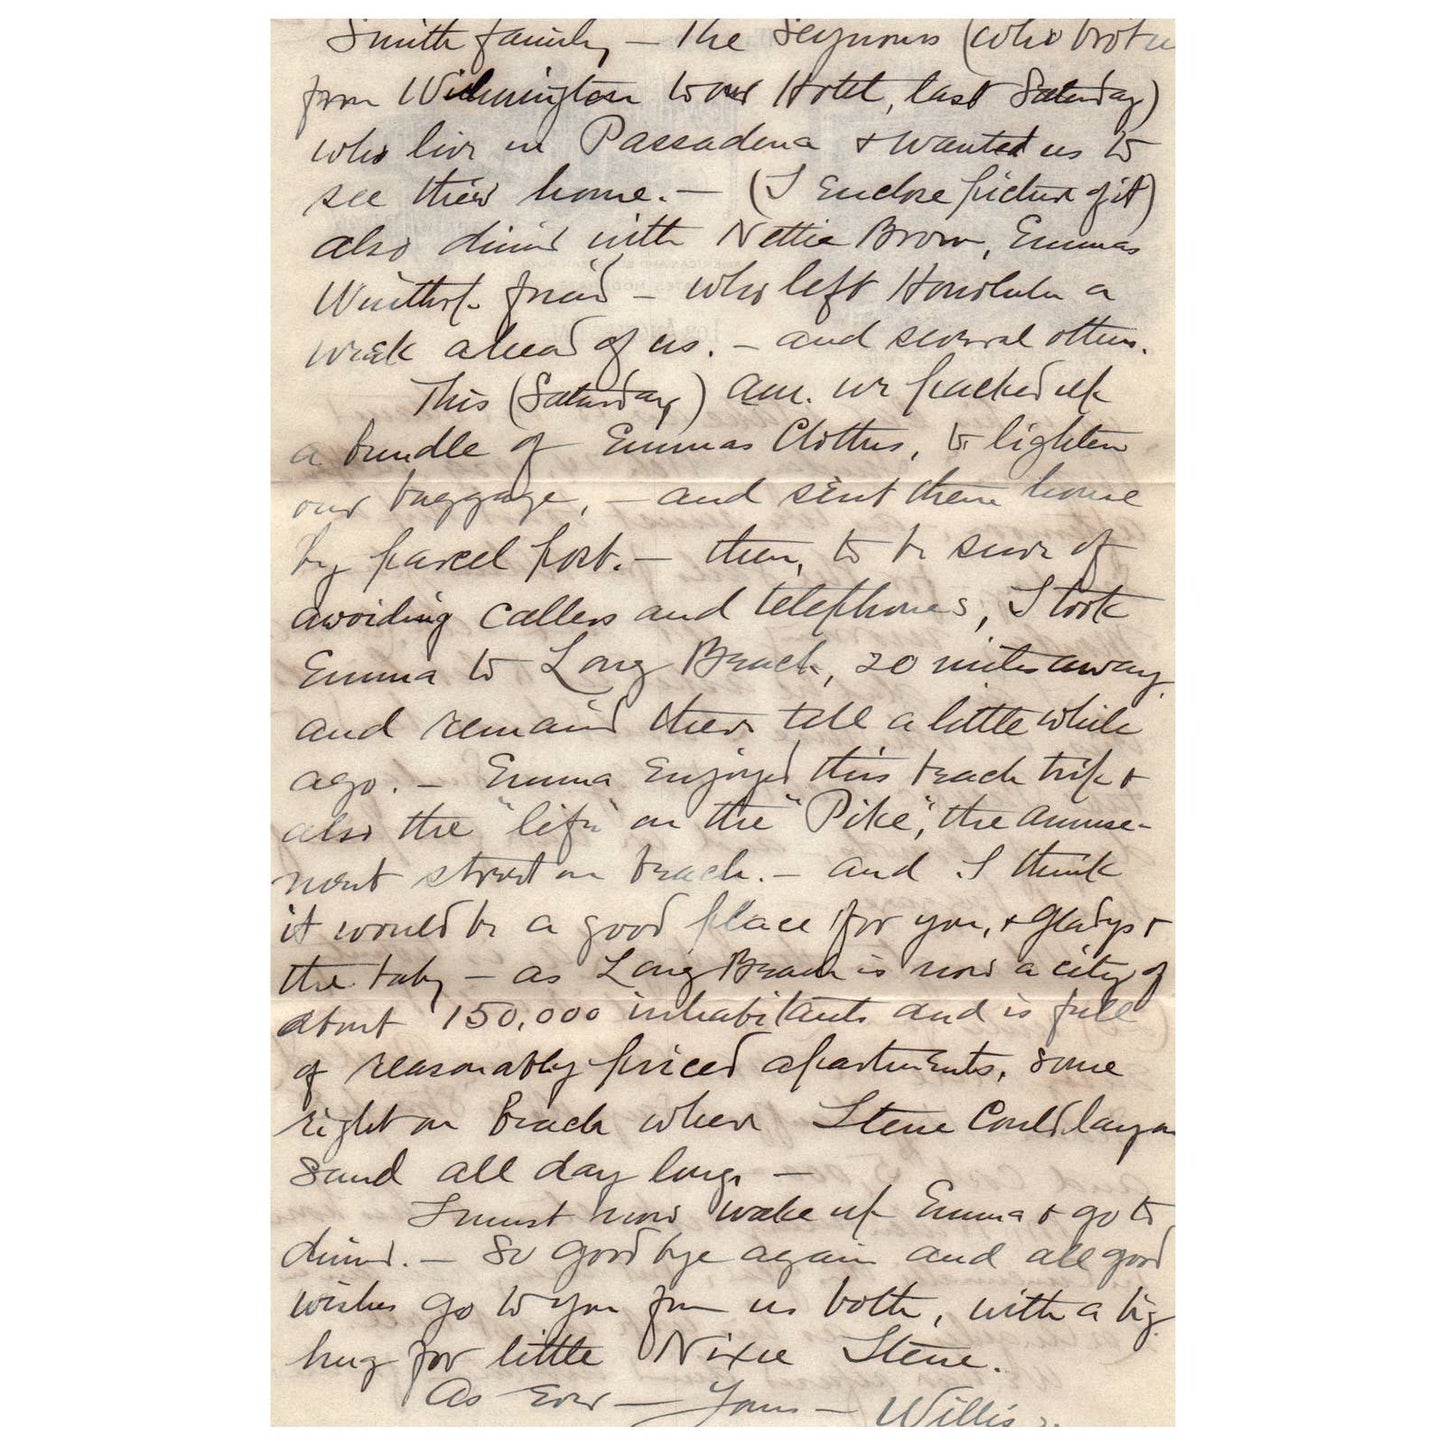 Smith family — The Seymours (who brot us
from Wilmington to our Hotel, last Saturday)
who live in Passadena & wanted us to
see their home. — (I Enclose picture of it)
also dinner with Nettie Brown, Emmas
Winthrop friend — who left Honolulu a
week ahead of us. — and several others.
This (Saturday) am. we packed up
a bundle of Emmas Clothes, to lighten
our baggage, — and sent them home
by parcel post. — then, to be sure of
avoiding callers and telephones, I took
Emma to Long Beach, 20 miles away
and remained there till a little while
ago. — Emma Enjoyed this beach trip &
also the "life" on the "Pike", the amuse-
ment street on beach. — and I think
it would be a good place for you, & Gladys &
the baby — as Long Beach is now a city of
about 150,000 inhabitants and is full
of reasonably priced apartments, some
right on Beach where Steve Could lay on
sand all day long. —
I must now wake up Emma & go to
dinner. — So goodbye again and all good
wishes go to you from us both, with a big
hug for little Nixie Steve.
As Ever — Yours — Willis